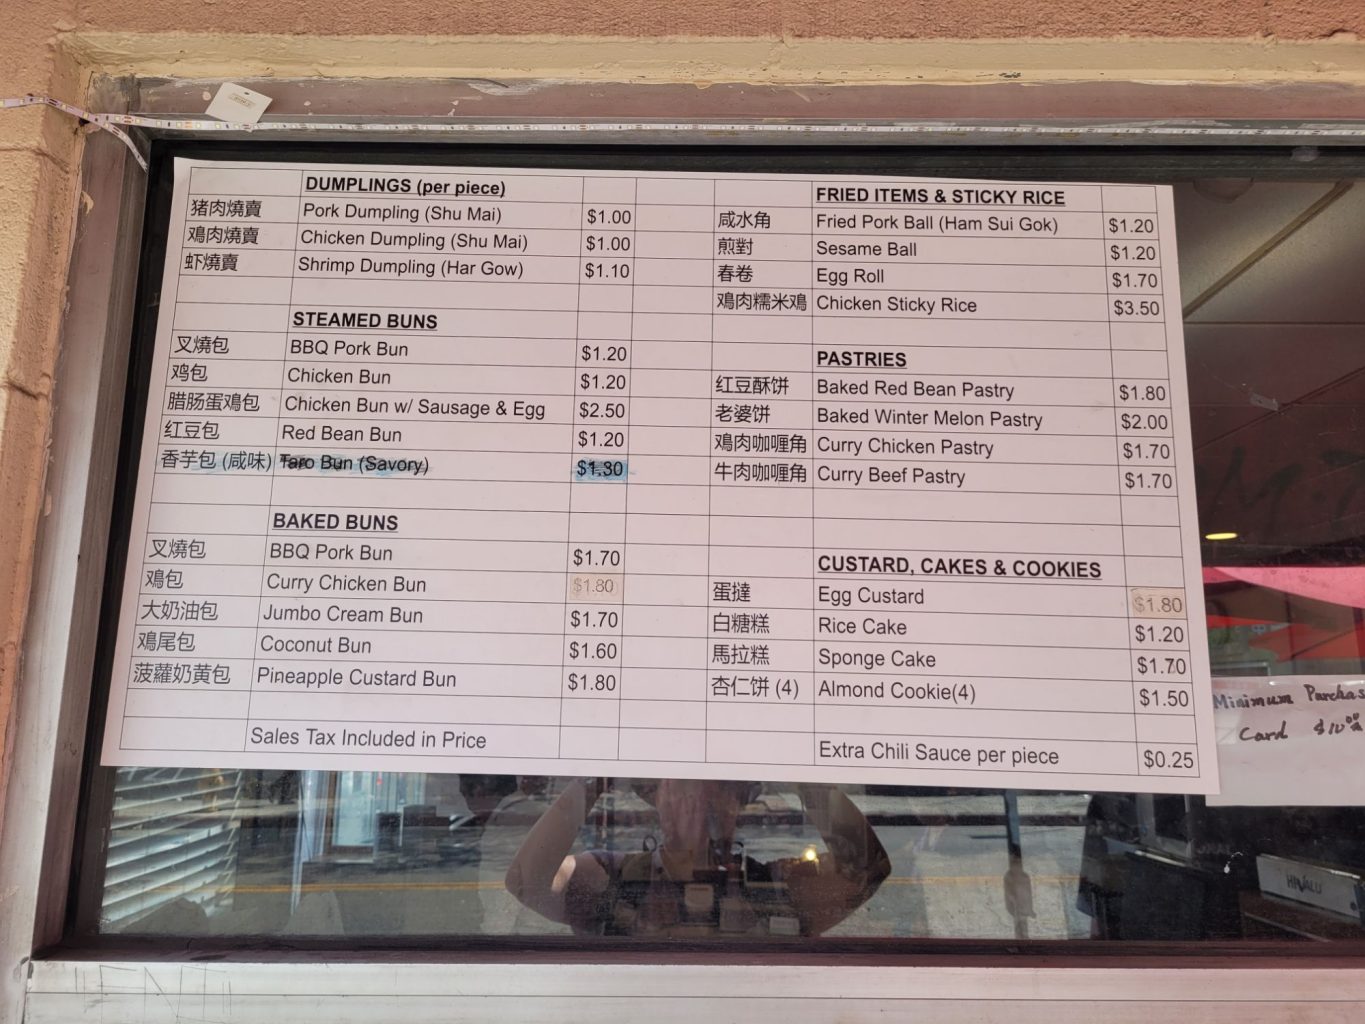 DUMPLINGS (per piece)
猪肉燒賣 Pork Dumpling (Shu Mai) $1.00
鳮肉燒賣 Chicken Dumpling (Shu Mai) $1.00
虾燒賣 Shrimp Dumpling (Har Gow) $1.10
STEAMED BUNS
叉燒包 BBQ Pork Bun $1.20
鸡包 Chicken Bun $1.20
腊肠蛋鳮包 Chicken Bun w/ Sausage & Egg $2.50
红豆包 Red Bean Bun $1.20
香芋包 (咸味) Taro Bun (Savory) $1.30
BAKED BUNS
叉燒包 BBQ Pork Bun $1.70
鳮包 Curry Chicken Bun $1.80
大奶油包 Jumbo Cream Bun $1.70
鳮尾包 Coconut Bun $1.60
菠蘿奶黄包 Pineapple Custard Bun $1.80
Sales Tax Included in Price
FRIED ITEMS & STICKY RICE
咸水角 Fried Pork Ball (Ham Sui Gok) $1.20
煎對 Sesame Ball $1.20
春卷 Egg Roll $1.70
鳮肉糯米鳮 Chicken Sticky Rice $3.50
PASTRIES
红豆酥饼 Baked Red Bean Pastry $1.80
老婆饼 Baked Winter Melon Pastry $2.00
鳮肉咖喱角 Curry Chicken Pastry $1.70
牛肉咖喱角 Curry Beef Pastry $1.70
CUSTARD, CAKES & COOKIES
蛋撻 Egg Custard $1.80
白糖糕 Rice Cake $1.20
馬拉糕 Sponge Cake $1.70
杏仁饼 (4) Almond Cookie(4) $1.50
Extra Chili Sauce per piece $0.25
Minimum Purchas
Card $10.00
HIVALU